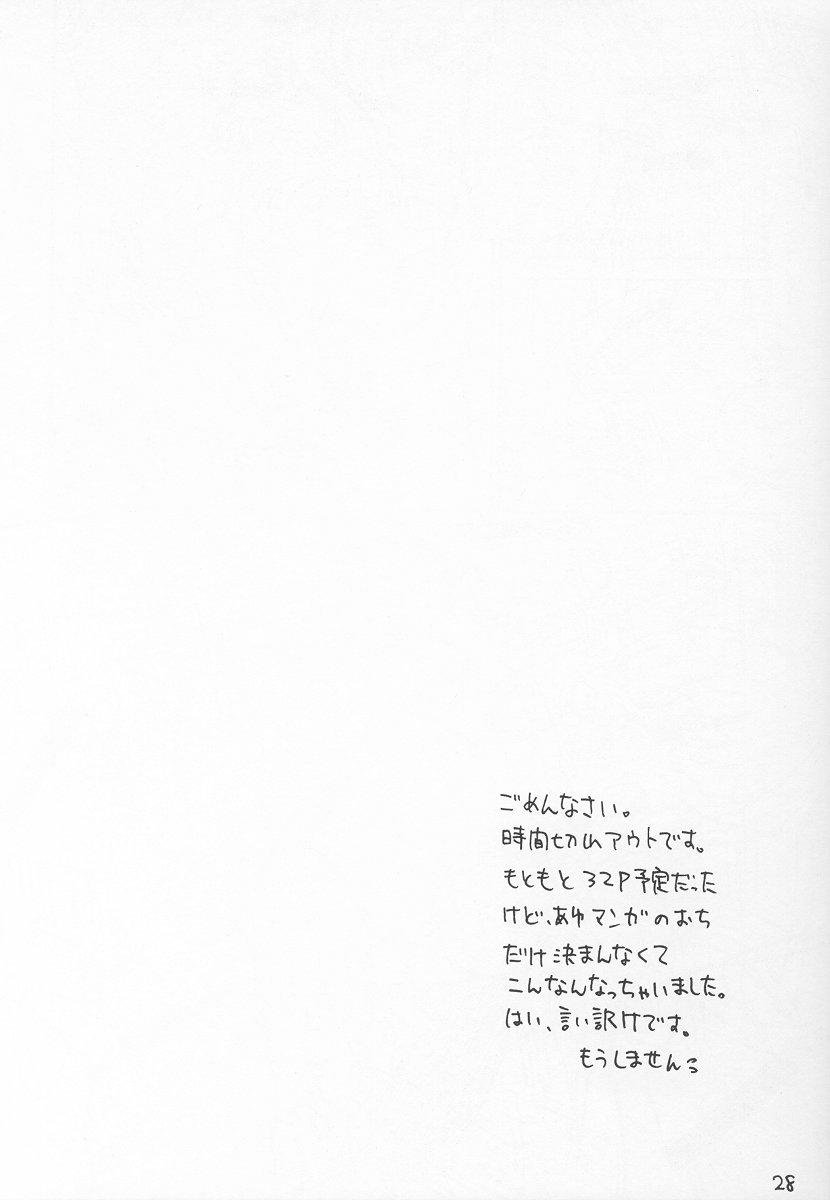 ごめんなさい。
時間切れアウトです。
もともと32P予定だった
けど、あゆマンガのおち
だけ決まんなくて
こんなんなっちゃいました。
はい、言い訳けです。
もうしません
28